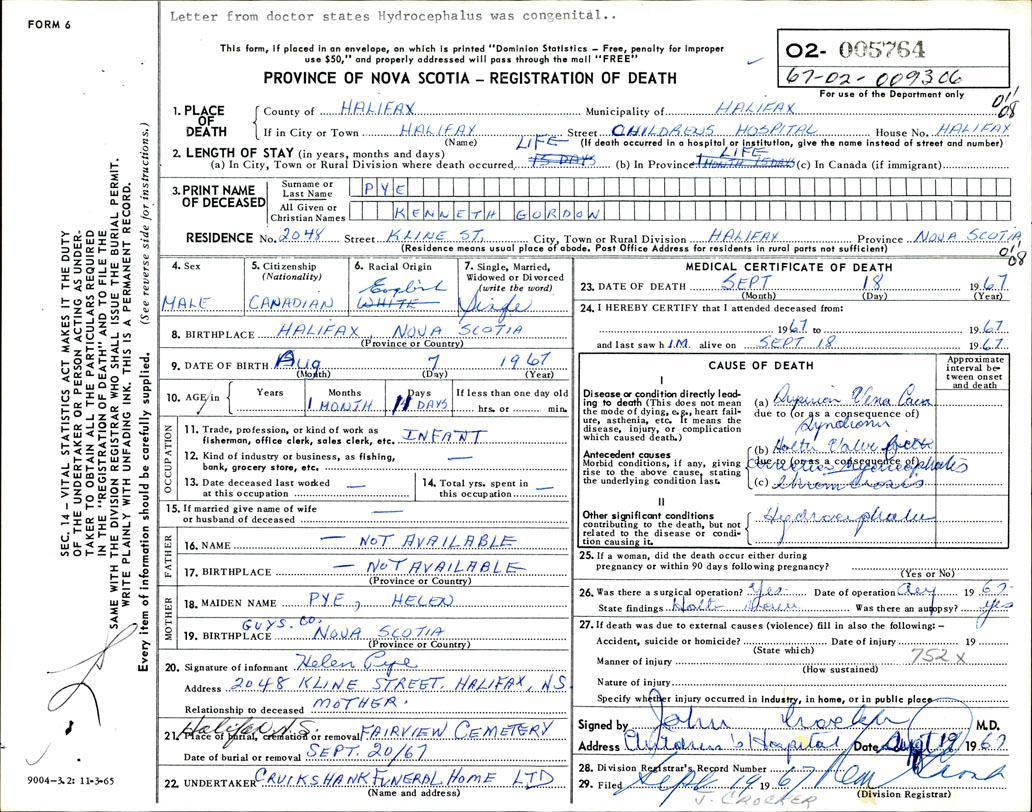 Letter from doctor states Hydrocephalus was congenital..
FORM 6
This form, if placed in an envelope, on which is printed "Dominion Statistics – Free, penalty for improper
use $50," and properly addressed will pass through the mail "FREE"
PROVINCE OF NOVA SCOTIA – REGISTRATION OF DEATH
O2- 005764
67-02-009306
For use of the Department only
011
08
1. PLACE OF DEATH
County of HALIFAX Municipality of HALIFAX
If in City or Town HALIFAX Street CHILDRENS HOSPITAL House No. HALIFAX
(Name) (If death occurred in a hospital or institution, give the name instead of street and number)
LIFE LIFE
2. LENGTH OF STAY (in years, months and days)
(a) In City, Town or Rural Division where death occurred, 15 DAYS (b) In Province 1 MONTH 15 DAYS (c) In Canada (if immigrant)
3. PRINT NAME OF DECEASED
Surname or Last Name PYE
All Given or Christian Names KENNETH GORDON
RESIDENCE No. 2048 Street KLINE ST. City, Town or Rural Division HALIFAX Province NOVA SCOTIA
(Residence means usual place of abode. Post Office Address for residents in rural parts not sufficient)
011
08
4. Sex MALE
5. Citizenship (Nationality) CANADIAN
6. Racial Origin English WHITE
7. Single, Married, Widowed or Divorced (write the word) Single
8. BIRTHPLACE HALIFAX, NOVA SCOTIA
(Province or Country)
9. DATE OF BIRTH Aug 7 1967
(Month) (Day) (Year)
10. AGE in Years Months Days If less than one day old
1 MONTH 11 DAYS hrs. or min.
OCCUPATION
11. Trade, profession, or kind of work as
fisherman, office clerk, sales clerk, etc. INFANT
12. Kind of industry or business, as fishing,
bank, grocery store, etc. —
13. Date deceased last worked
at this occupation —
14. Total yrs. spent in
this occupation —
15. If married give name of wife
or husband of deceased —
FATHER
16. NAME — NOT AVAILABLE
17. BIRTHPLACE — NOT AVAILABLE
(Province or Country)
MOTHER
18. MAIDEN NAME PYE, HELEN
GUYS. CO.
19. BIRTHPLACE NOVA SCOTIA
(Province or Country)
20. Signature of informant Helen Pye
Address 2048 KLINE STREET. HALIFAX, N.S.
Relationship to deceased MOTHER.
Halifax N.S.
21. Place of burial, cremation or removal FAIRVIEW CEMETERY
Date of burial or removal SEPT. 20/67
22. UNDERTAKER CRUIKSHANK FUNERAL HOME LTD
(Name and address)
MEDICAL CERTIFICATE OF DEATH
23. DATE OF DEATH SEPT 18 1967.
(Month) (Day) (Year)
24. I HEREBY CERTIFY that I attended deceased from:
1967 to 1967.
and last saw h I.M. alive on SEPT 18 1967.
CAUSE OF DEATH
Approximate interval between onset and death
I
Disease or condition directly leading to death (This does not mean the mode of dying, e.g., heart failure, asthenia, etc. It means the disease, injury, or complication which caused death.)
(a) Superior Vena Cava
due to (or as a consequence of)
Syndrome
Antecedent causes
Morbid conditions, if any, giving rise to the above cause, stating the underlying condition last.
(b) Holter Valve
due to (or as a consequence of)
(c) Thrombosis
II
Other significant conditions
contributing to the death, but not related to the disease or condition causing it.
Hydrocephalus
25. If a woman, did the death occur either during
pregnancy or within 90 days following pregnancy?
(Yes or No)
26. Was there a surgical operation? Yes- Date of operation Aug 1967-
State findings Holter Was there an autopsy? yes
27. If death was due to external causes (violence) fill in also the following: –
Accident, suicide or homicide? Date of injury 19
(State which)
752 x
Manner of injury
(How sustained)
Nature of injury
Specify whether injury occurred in industry, in home, or in public place
Signed by John Crocker M.D.
Address Children's Hospital Date Sept 19 1967.
28. Division Registrar's Record Number
29. Filed Sept 19 1967
(Division Registrar)
J. CROCKER
SEC. 14 – VITAL STATISTICS ACT MAKES IT THE DUTY
OF THE UNDERTAKER OR PERSON ACTING AS UNDER-
TAKER TO OBTAIN ALL THE PARTICULARS REQUIRED
IN THE "REGISTRATION OF DEATH" AND TO FILE THE
SAME WITH THE DIVISION REGISTRAR WHO SHALL ISSUE THE BURIAL PERMIT.
WRITE PLAINLY WITH UNFADING INK. THIS IS A PERMANENT RECORD.
Every item of information should be carefully supplied. (See reverse side for instructions.)
9004-3.2: 11-3-65